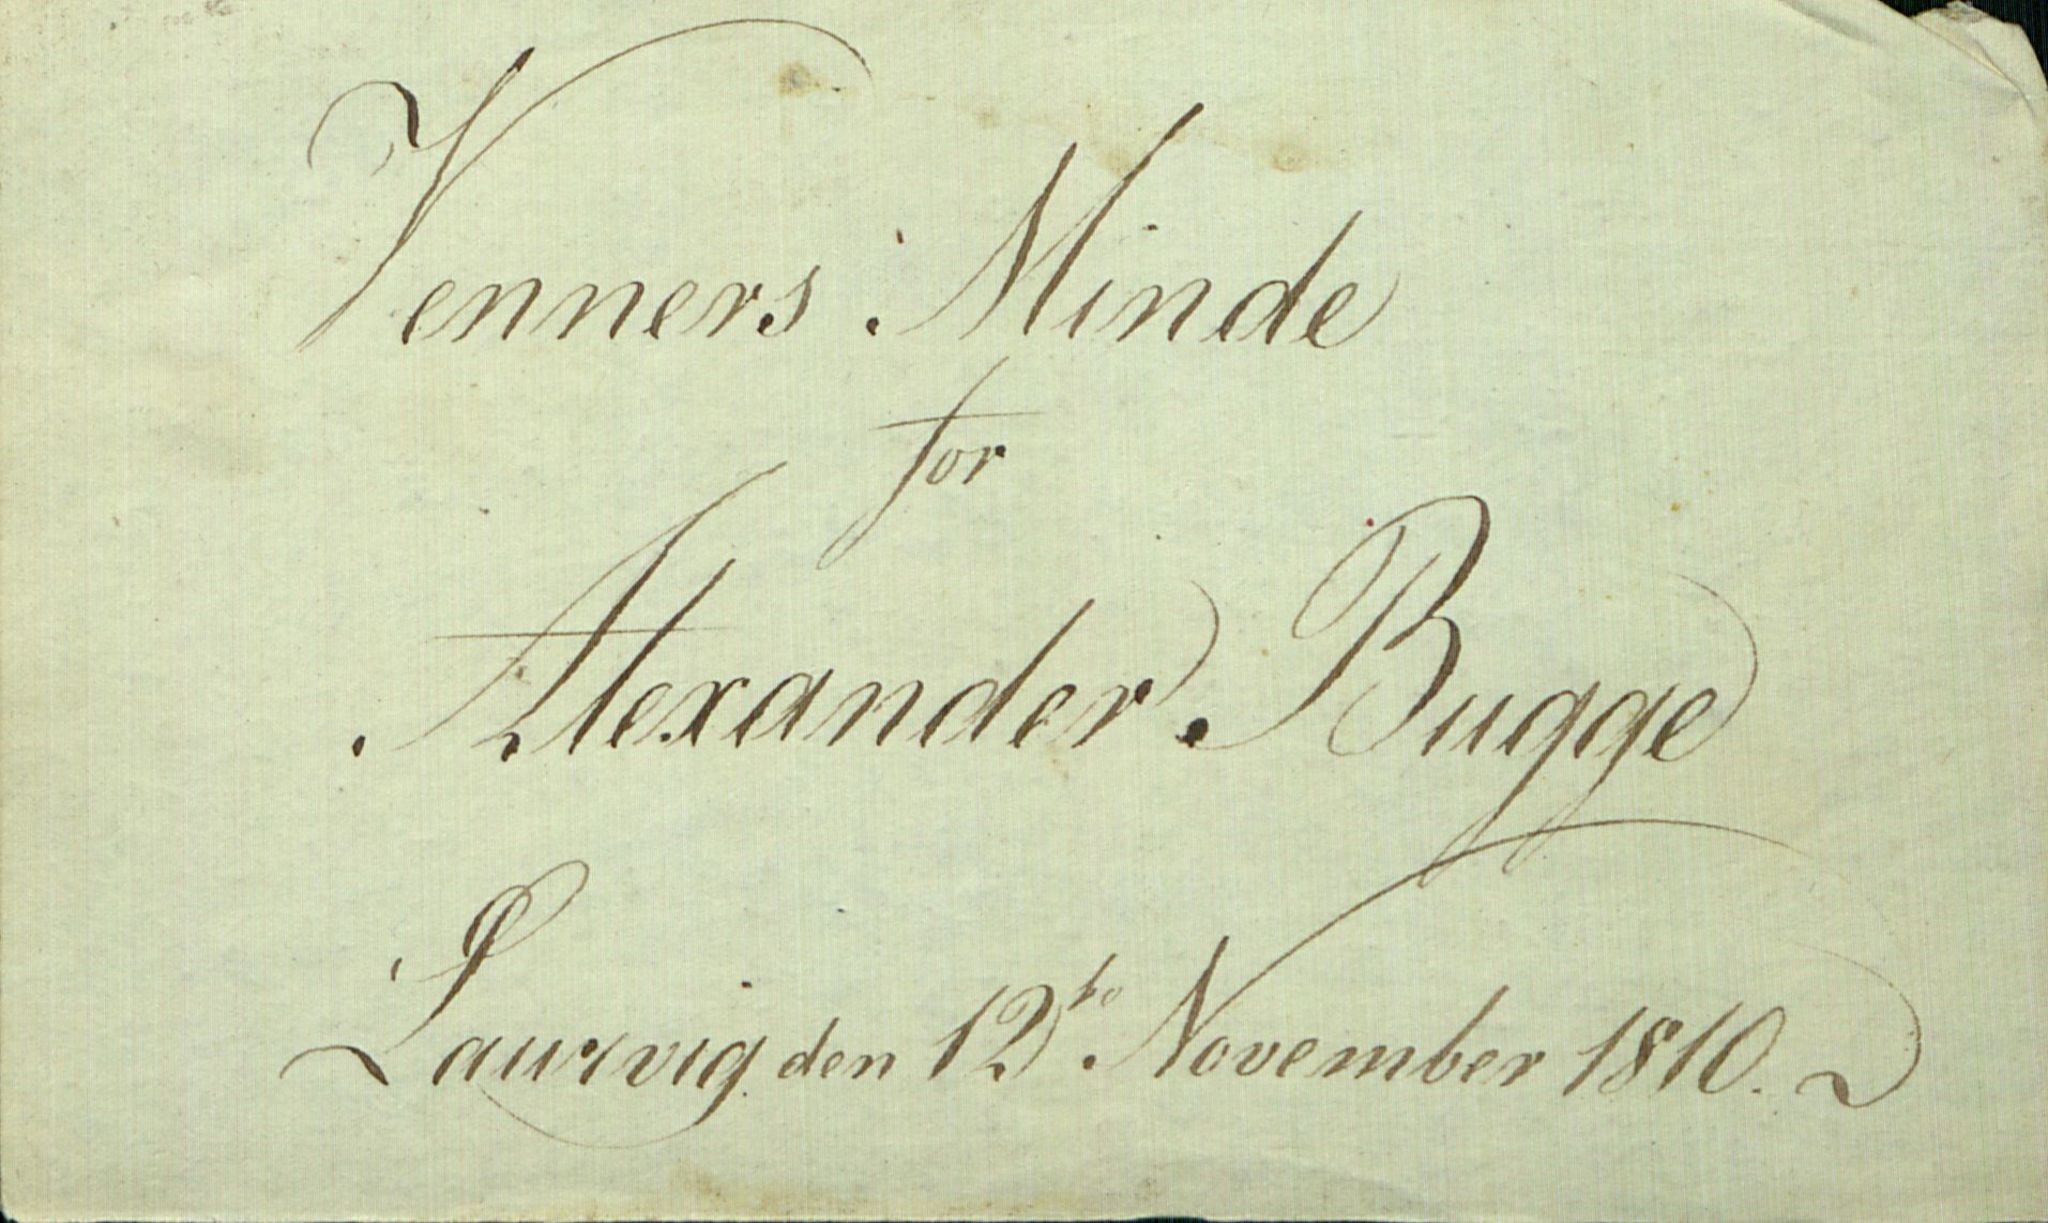 Venners Minde
for
Alexander Bugge
Laurvig den 12te November 1810.